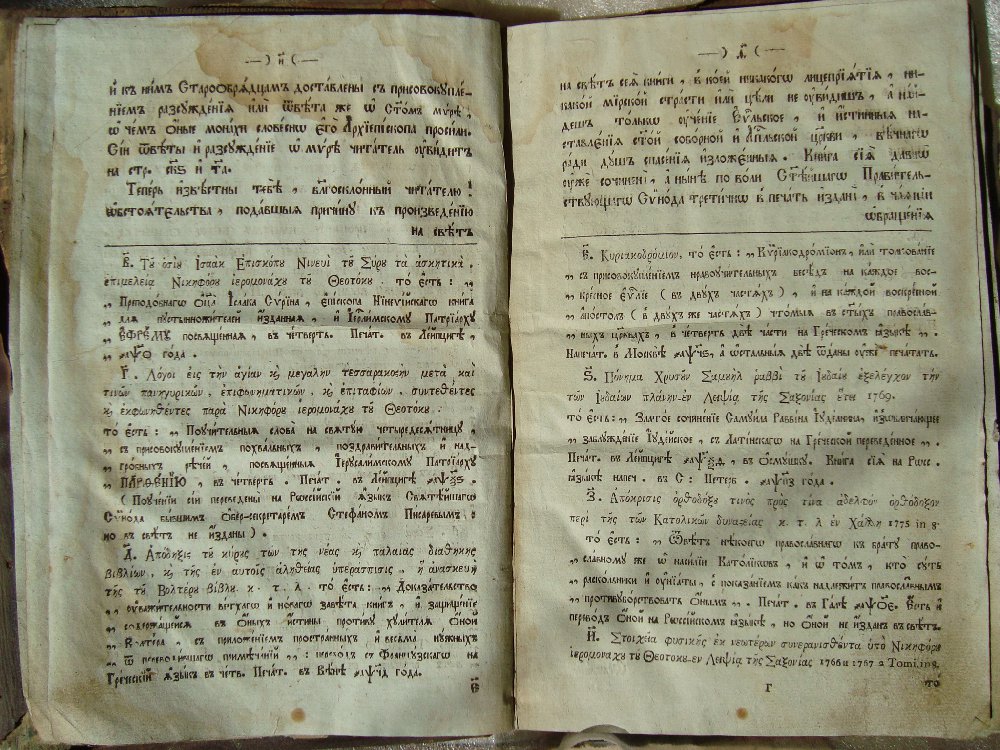 —) и҃ (—
и҆ къ ни́мъ Старообрѧ́дцамъ доставлены съ присовокупле́-
нїемъ разсужде́нїѧ и҆лѝ ѿвѣ́та же ѡ҆ Ст҃о́мъ мѵ́рѣ,
ѡ҆ чемъ ѻ҆́ные монахи словесно Е҆гѡ̀ А҆рхїепи́скопа просили.
Сїѝ ѿвѣ́ты и҆ разсужде́нїе ѡ҆ мѵ́рѣ чита́тель ѹ҆ви́дитъ
на стр. и҆ т҃а.
Теперь и҆звѣ́стны тебѣ̀, бл҃госкло́нный чита́телю!
ѡ҆бстоѧ́тельства, пода́вшыѧ причи́ну къ произведе́нїю
на свѣ́тъ
В҃. Τȣ ὁσίȣ Ισαὰκ Επισκόπȣ Νινευὶ τȣ Σύρȣ τὰ ἀσκητικὰ.
επιμελείᾳ Νικηφόρȣ ἱερομονάχȣ τȣ Θεοτόκȣ. то̀ є҆́сть: „
„ Преподо́бнагѡ ѻ҆ц҃а̀ І҆саа́ка Сѵ́рїна, є҆пі́скопа Нїневі́йскагѡ книга
„ длѧ пусты́нножителей и҆́зданнаѧ, и҆ І҆ер҃ли́мскому Патрїа́рху
„ Е҆ФРЕ́МУ посвѧще́ннаѧ, въ че́тверть. Печа́т. въ Ле́йпцигѣ,
„ ҂аѱѻ҃ года.
Г҃. Λόγοι εις τὴν ἁγίαν ϗ μεγάλην τεσσαρακοςὴν μετὰ καὶ
τινῶν πανηγυρικῶν, ἐπιφωνηματικῶν, ϗ ἐπιταφίων, συντεθέντες
ϗ ἐκφωνηθέντες παρὰ Νικηφόρȣ ἱερομονάχȣ τȣ Θεοτόκȣ:
то̀ є҆́сть: „ Поучи́тельныѧ слова на свѧту́ю четыредесѧ́тницу,
„ съ присовокупле́нїемъ похва́льныхъ, поздрави́тельныхъ и҆ над-
„ гро́бныхъ рѣ́чей, посвѧще́нныѧ І҆ерусали́мскому Патрїа́рху
„ ПАРѲЕ́НЇЮ, въ че́тверт. Печа́т. въ Ле́йпцигѣ ҂аѱѯ҃ѕ.
(Поуче́нїи сїѝ переведены̀ на Рѡссі́йскїй ѧ҆зы́къ Свѧтѣ́йшагѡ
Сѵ́нода бы́вшимъ ѻ҆беръ-секретаре́мъ Стефа́номъ Пи́саревымъ
но въ свѣ́тъ не и҆́зданы).
Д҃. Απόδειξις τȣ κύρȣς τῶν τῆς νέας ϗ παλαιᾶς διαθήκης
βιβλίων, ϗ τῆς ἐν αυτοῖς ἀληθείας ὑπεράσπισις, ἢ ἀνασκευὴ
τῆς τȣ Βολτέρȣ βίβλȣ. κ. τ. λ. то̀ є҆́сть: „ Доказа́тельство
„ ѹ҆важи́тельности ве́тхагѡ и҆ но́вагѡ завѣ́та книгъ, и҆ защище́нїе
„ содержа́щейсѧ въ ѻ҆́ныхъ и҆́стины противу хули́телѧ ѻ҆́ной
„ Во́лтера, съ приложе́нїемъ простра́нныхъ и҆ весьма ну́жныхъ
„ ѿ переводи́вшагѡ примѣча́нїй „: перево́дъ съ Францу́зскагѡ на
Гре́ческїй ѧ҆зы́къ въ четв. Печа́т. въ Вѣ́нѣ ҂аѱч҃д года.
є҃
—) ѳ҃ (—
на свѣ́тъ сеѧ̀ кни́ги, въ коей никако́гѡ лицепрїѧ́тїѧ, ни-
како́й мїрско́й стра́сти и҆лѝ цѣ́ли не ѹ҆ви́дишъ, а҆ на́й-
дешъ то́лькѡ ѹ҆че́нїе Е҆ѵⷢ҇льское, и҆ и҆́стинныѧ на-
ставле́нїѧ ст҃о́й собо́рной и҆ А҆п҃льской цр҃кви, вѣ́чнагѡ
ради душъ спасе́нїѧ и҆зложе́нныѧ. Книга сїѧ̀ давнѡ̀
ѹ҆жѐ сочинена̀, а҆ ны́нѣ по во́ли Ст҃ѣ́йшагѡ Прави́тель-
ствующагѡ Сѵ́нода тре́тичнѡ в̾ печа́ть и҆здана̀, въ
ѡ҆браще́нїѧ
Е҃. Κυριακοδρόμιον, то̀ є҆́сть: „ Кѵрїакодро́мїѻнъ, и҆лѝ толкова́нїе
„ съ присовокупле́нїемъ нравоучи́тельныхъ бесѣ́дъ на каждое вос-
„ кре́сное є҆ѵⷢ҇лїе (въ двухъ частѧ́хъ), и҆ на каждой воскре́сной
„ а҆по́столъ (въ двухъ же частѧ́хъ) что́мыѧ въ ст҃ы́хъ правосла́в-
„ ныхъ цр҃квахъ, в̾ че́тверть двѣ части на Гре́ческомъ ѧ҆зы́кѣ „.
Напеча́т. в̾ Москвѣ̀ ҂аѱч҃ѕ, а҆ ѡ҆ста́льныѧ двѣ̀ ѿданы ѹ҆жѐ печа́тать.
Ѕ҃. Πόνημα Χρυσοȣν Σαμȣὴλ ραββὶ τȣ Ιȣδαίȣ ἐξελέγχον τὴν
τῶν Ιȣδαίων πλάνην-ἐν Λειψίᾳ τῆς Σαξονίας ἔτει 1769.
то̀ є҆́сть: „ Злато́е сочине́нїе Самуи́ла Равви́на І҆уде́анина, и҆з̾ѡблича́ющее
„ заблужде́нїе І҆уде́йское, съ Лати́нскагѡ на Гре́ческой переведе́нное „.
Печа́т. въ Ле́йпцигѣ ҂аѱѯ҃ѳ, въ ѻ҆сму́шку. Книга сїѧ̀ на Рѡсс.
ѧ҆зы́кѣ напеч. въ С: Петерб. года.
З҃. Απόκρισις ὀρθοδόξȣ τινὸς πρὸς τινα ἀδελφὸν ὀρθόδοξον
περὶ τῆς τῶν Κατολίκων δυναςείας κ. τ. λ ἐν Χάλῃ 1775 in 8.
то̀ є҆́сть: „ Ѿвѣ́тъ нѣ́коегѡ правосла́внагѡ къ бра́ту право-
„ сла́вному же ѡ҆ наси́лїи Като́ликѡвъ, и҆ ѡ҆ то́мъ, ктѡ суть
„ раско́лники и҆ ѹ҆нїа́ты, съ показа́нїемъ какъ надлежи́тъ правосла́внымъ
„ противубо́рствовать ѻ҆́нымъ „. Печа́т. въ Га́лѣ ҂аѱо҃є. Е҆сть и҆
перево́дъ ѻ҆́ной на Рѡссі́йскомъ ѧ҆зы́кѣ, но ѻ҆́ной не и҆́зданъ въ свѣ́тъ.
И҃. Στοιχεῖα φυσικῆς ἐκ νεωτέρων συνερανισθέντα ὑπὸ Νικηφόρȣ
ἱερομονάχȣ τȣ Θεοτόκȣ-ἐν Λειψίᾳ τῆς Σαξονίας 1766 и 1767 2 Tomi, in 8.
Г
то̀